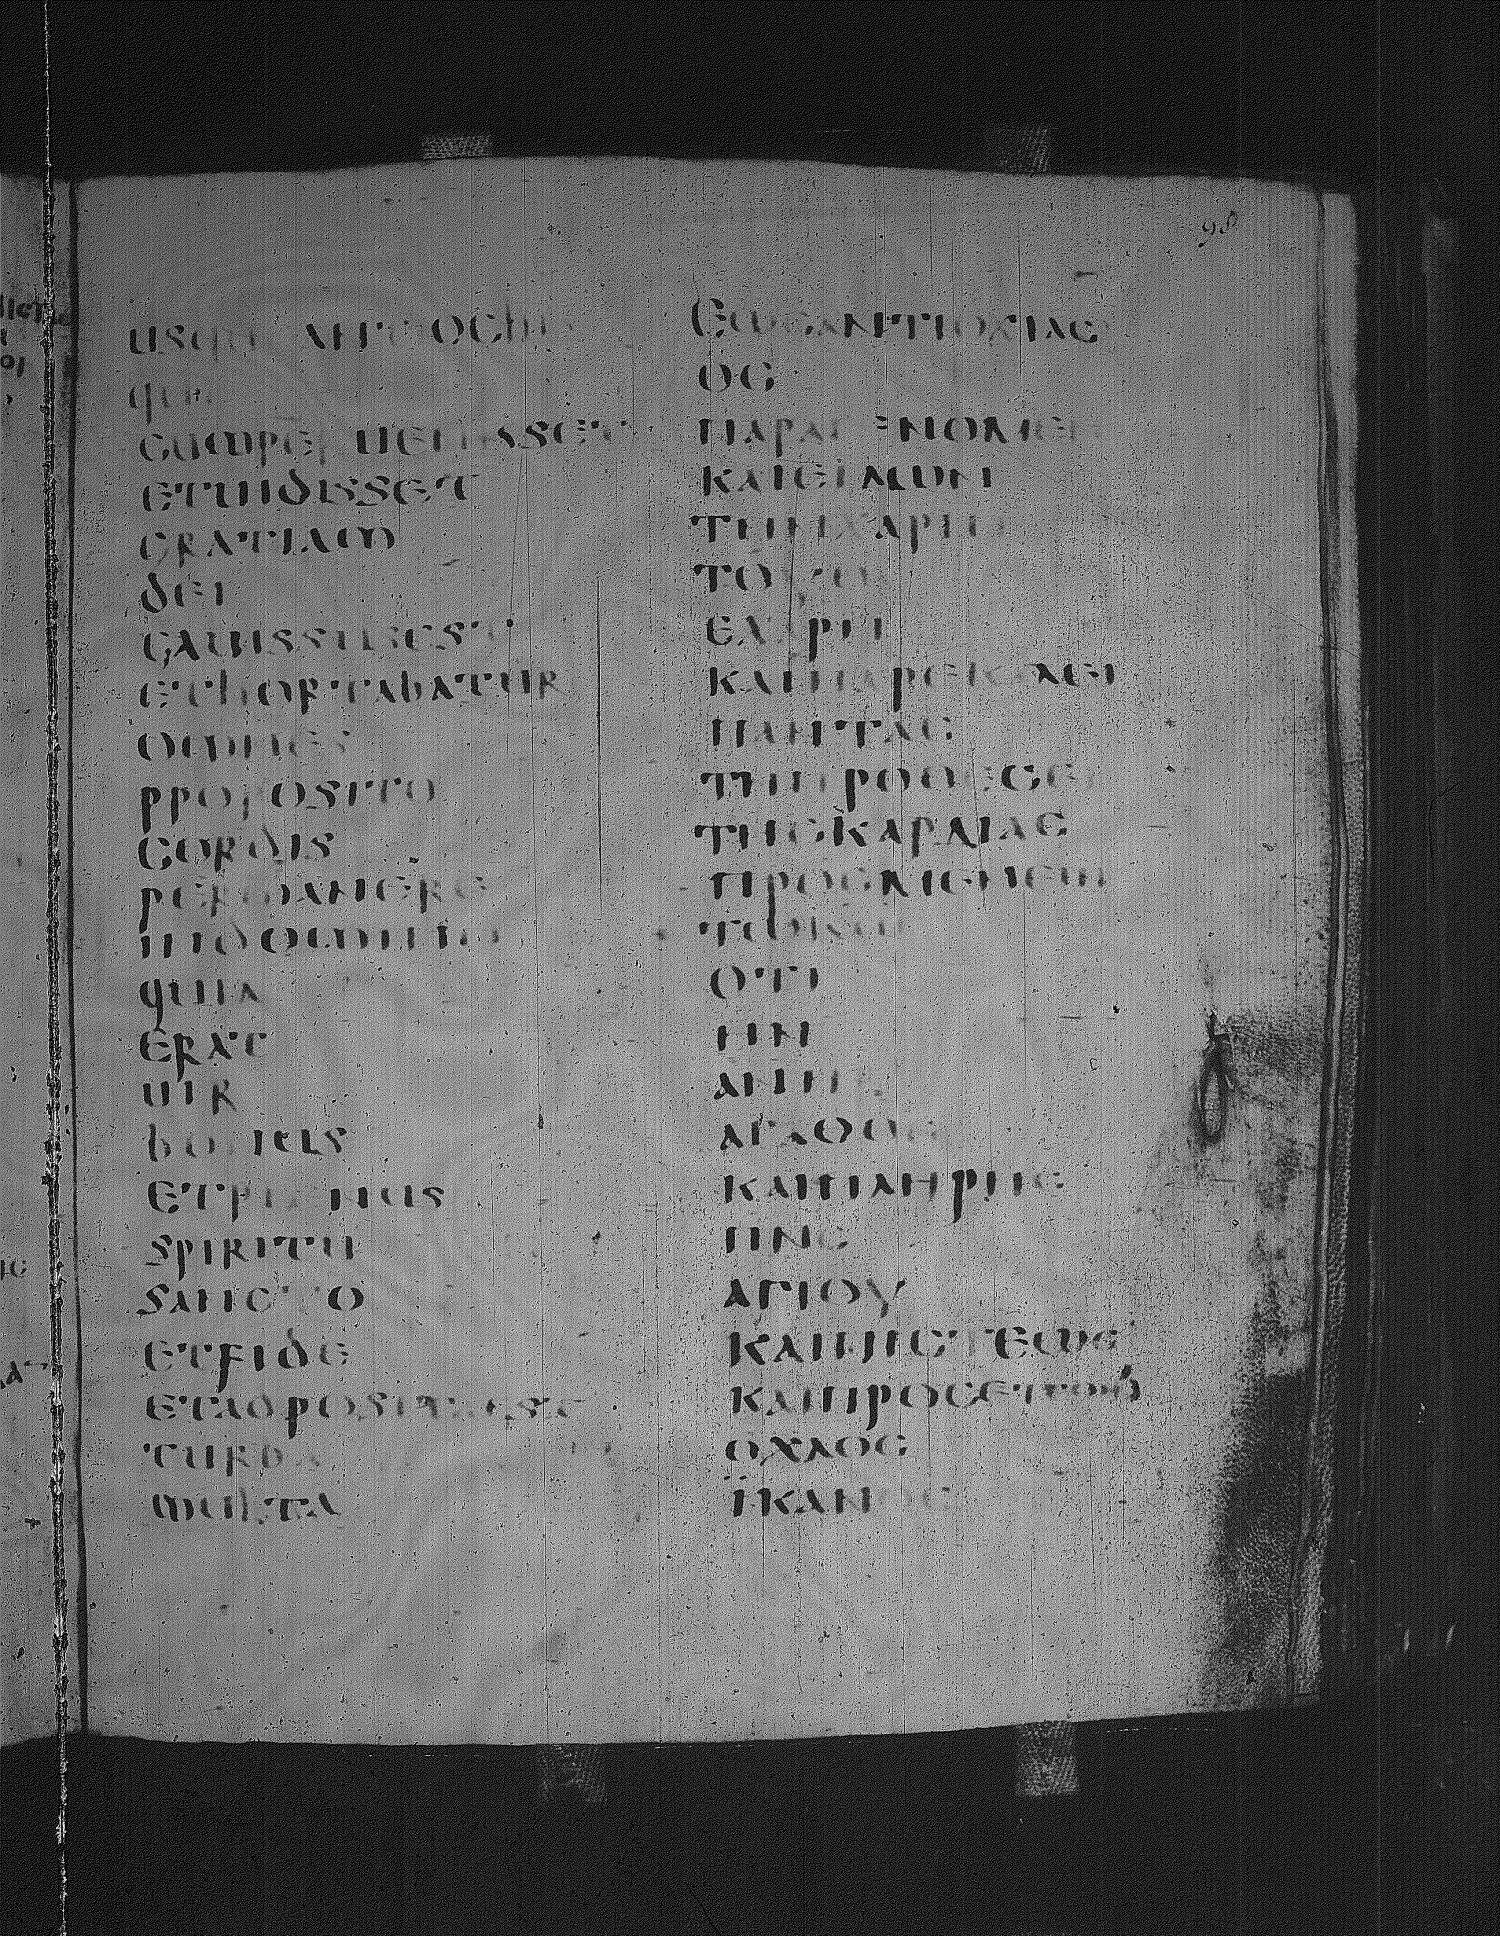 98
usque antiochia
qui
cumperuenisset
etuidisset
gratiam
dei
gauissusest
ethortabatur
omnes
proposito
cordis
permanere
indomino
quia
erat
uir
bonus
etplenus
spiritu
sancto
etfide
etadpositaest
turba
multa
ΕΩϹΑΝΤΙΟΧΙΑϹ
ΟϹ
ΚΑΙΕΙΔΩΝ
ΤΗΝΧΑΡΙΝ
ΤΟΥΘΥ
ΕΧΑΡΗ
ΚΑΙΠΑΡΕΚΑΛΕΙ
ΠΑΝΤΑϹ
ΤΗΠΡΟΘΕϹΕΙ
ΤΗϹΚΑΡΔΙΑϹ
ΠΡΟϹΜΕΝΕΙΝ
ΤΩΚΩ
ΟΤΙ
ΗΝ
ΑΝΗΡ
ΑΓΑΘΟϹ
ΚΑΙΠΛΗΡΗϹ
ΠΝϹ
ΑΓΙΟΥ
ΚΑΙΠΙϹΤΕΩϹ
ΚΑΙΠΡΟϹΕΤΕΘΗ
ΟΧΛΟϹ
ΪΚΑΝΟϹ